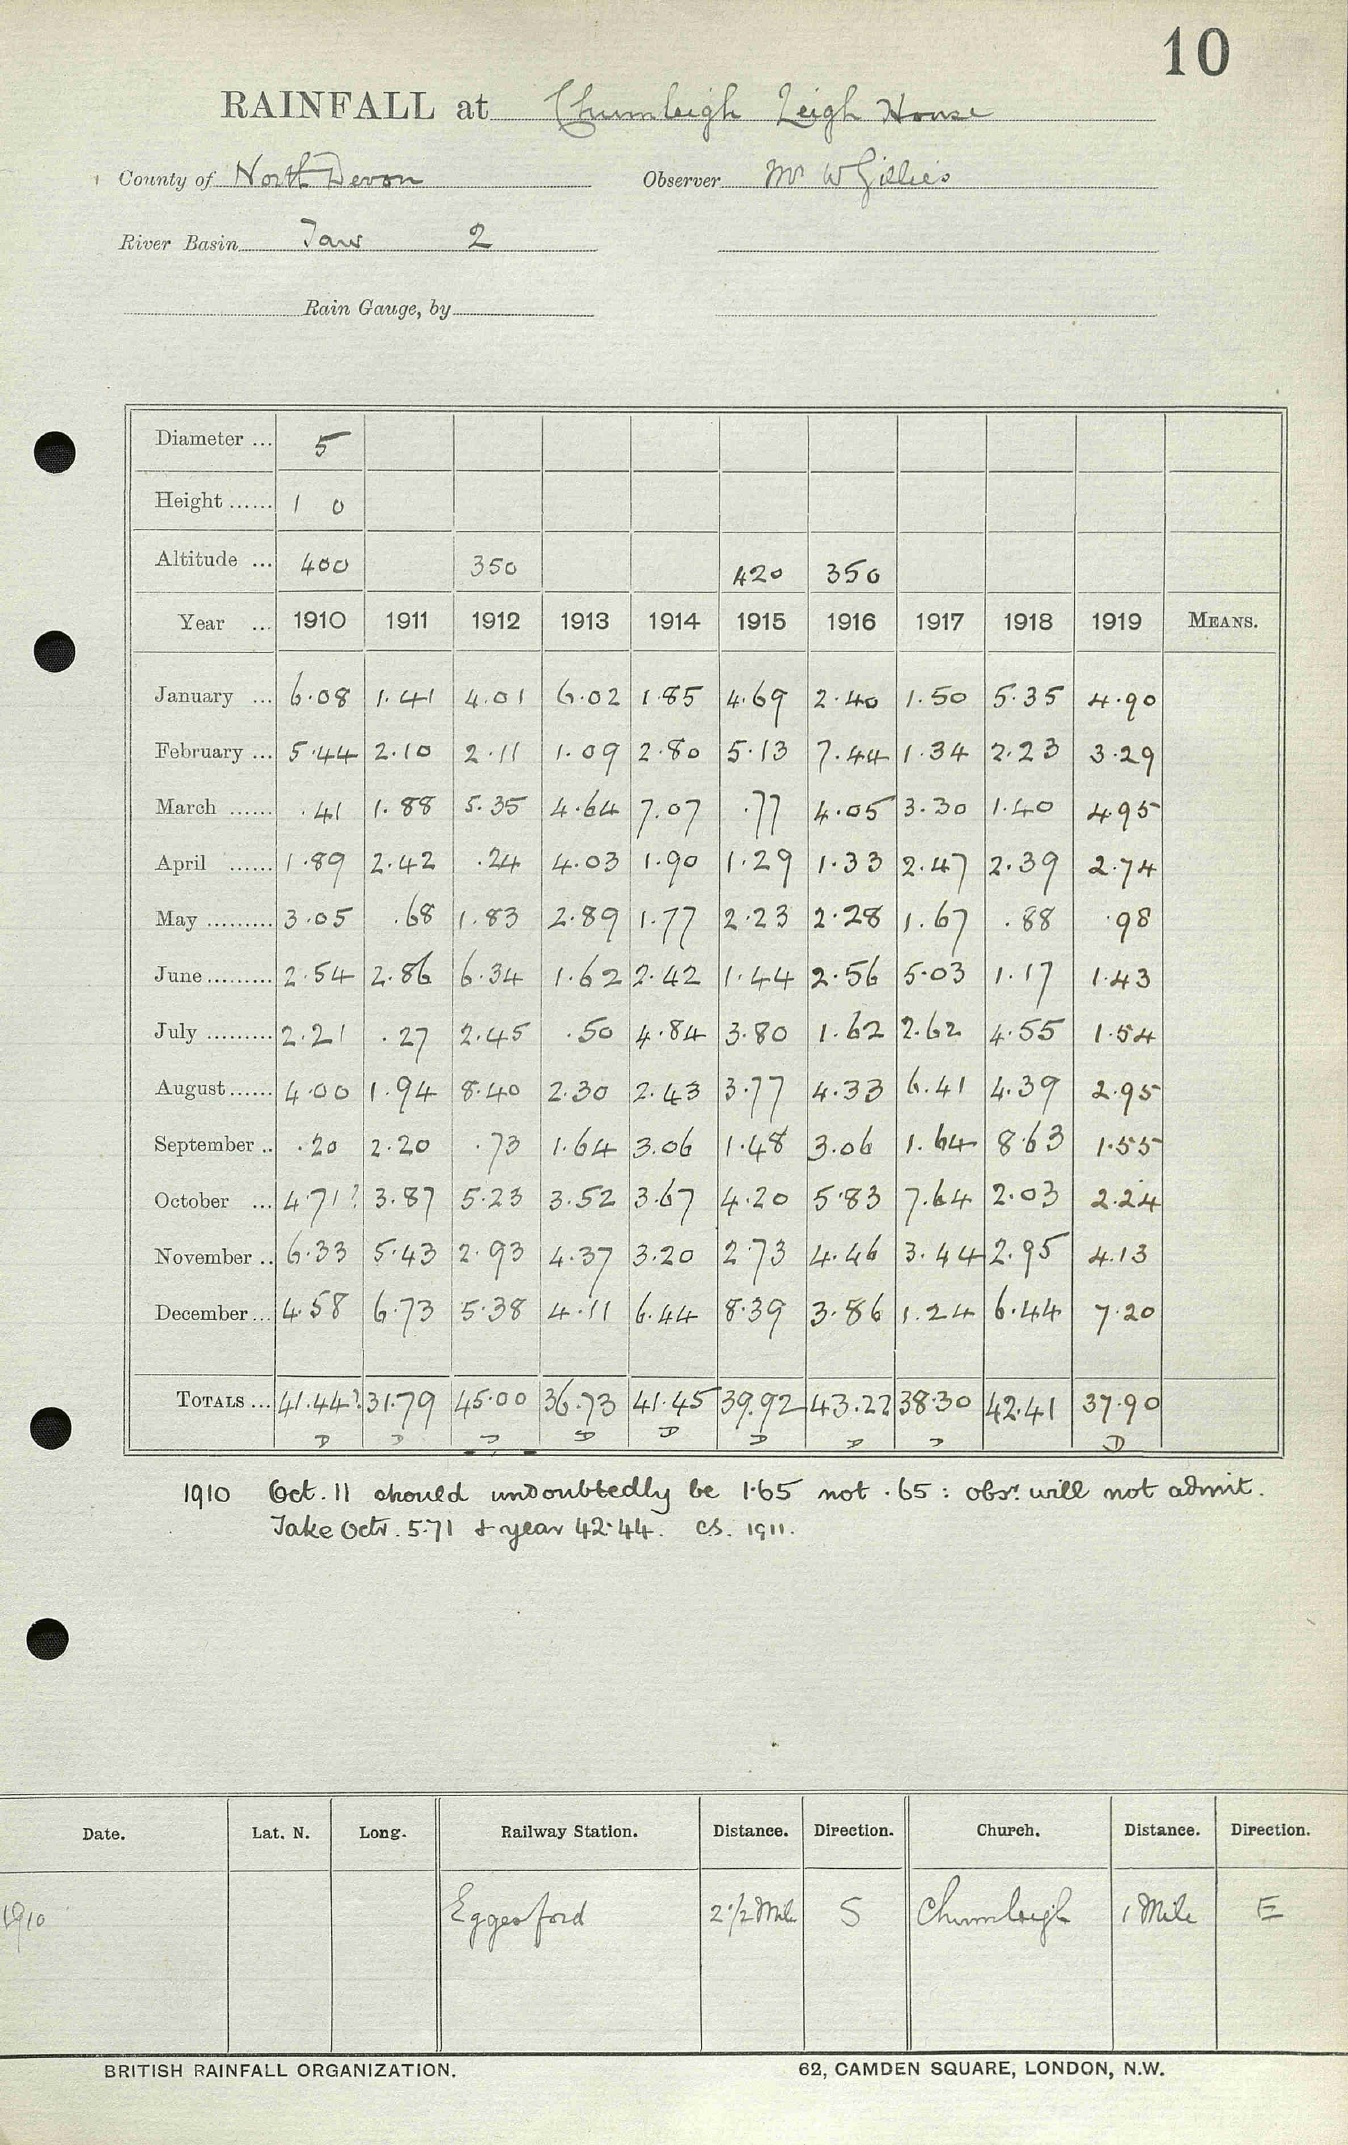 10
RAINFALL at Chumleigh Leigh House
County of North Devon Observer Mr W Gillies
River Basin Taw 2
Rain Gauge, by
Diameter ... 5
Height ...... 1 0
Altitude ... 400 350 420 350
Year ... 1910 1911 1912 1913 1914 1915 1916 1917 1918 1919 MEANS.
January ... 6.08 1.41 4.01 6.02 1.85 4.69 2.40 1.50 5.35 4.90
February ... 5.44 2.10 2.11 1.09 2.80 5.13 7.44 1.34 2.23 3.29
March ...... .41 1.88 5.35 4.64 7.07 .77 4.05 3.30 1.40 4.95
April ...... 1.89 2.42 .24 4.03 1.90 1.29 1.33 2.47 2.39 2.74
May ......... 3.05 .68 1.83 2.89 1.77 2.23 2.28 1.67 .88 .98
June ......... 2.54 2.86 6.34 1.62 2.42 1.44 2.56 5.03 1.17 1.43
July ......... 2.21 .27 2.45 .50 4.84 3.80 1.62 2.62 4.55 1.54
August ...... 4.00 1.94 8.40 2.30 2.43 3.77 4.33 6.41 4.39 2.95
September .. .20 2.20 .73 1.64 3.06 1.48 3.06 1.64 8.63 1.55
October ... 4.71? 3.87 5.23 3.52 3.67 4.20 5.83 7.64 2.03 2.24
November .. 6.33 5.43 2.93 4.37 3.20 2.73 4.46 3.44 2.95 4.13
December ... 4.58 6.73 5.38 4.11 6.44 8.39 3.86 1.24 6.44 7.20
TOTALS ... 41.44? 31.79 45.00 36.73 41.45 39.92 43.22 38.30 42.41 37.90
D D D D D D D D D
1910 Oct. 11 should undoubtedly be 1.65 not .65 : obsr. will not admit.
Take Octr. 5.71 & year 42.44. CS. 1911.
Date. Lat. N. Long. Railway Station. Distance. Direction. Church. Distance. Direction.
1910 Eggesford 2 1/2 Mile S Chumleigh 1 Mile E
BRITISH RAINFALL ORGANIZATION. 62, CAMDEN SQUARE, LONDON, N.W.